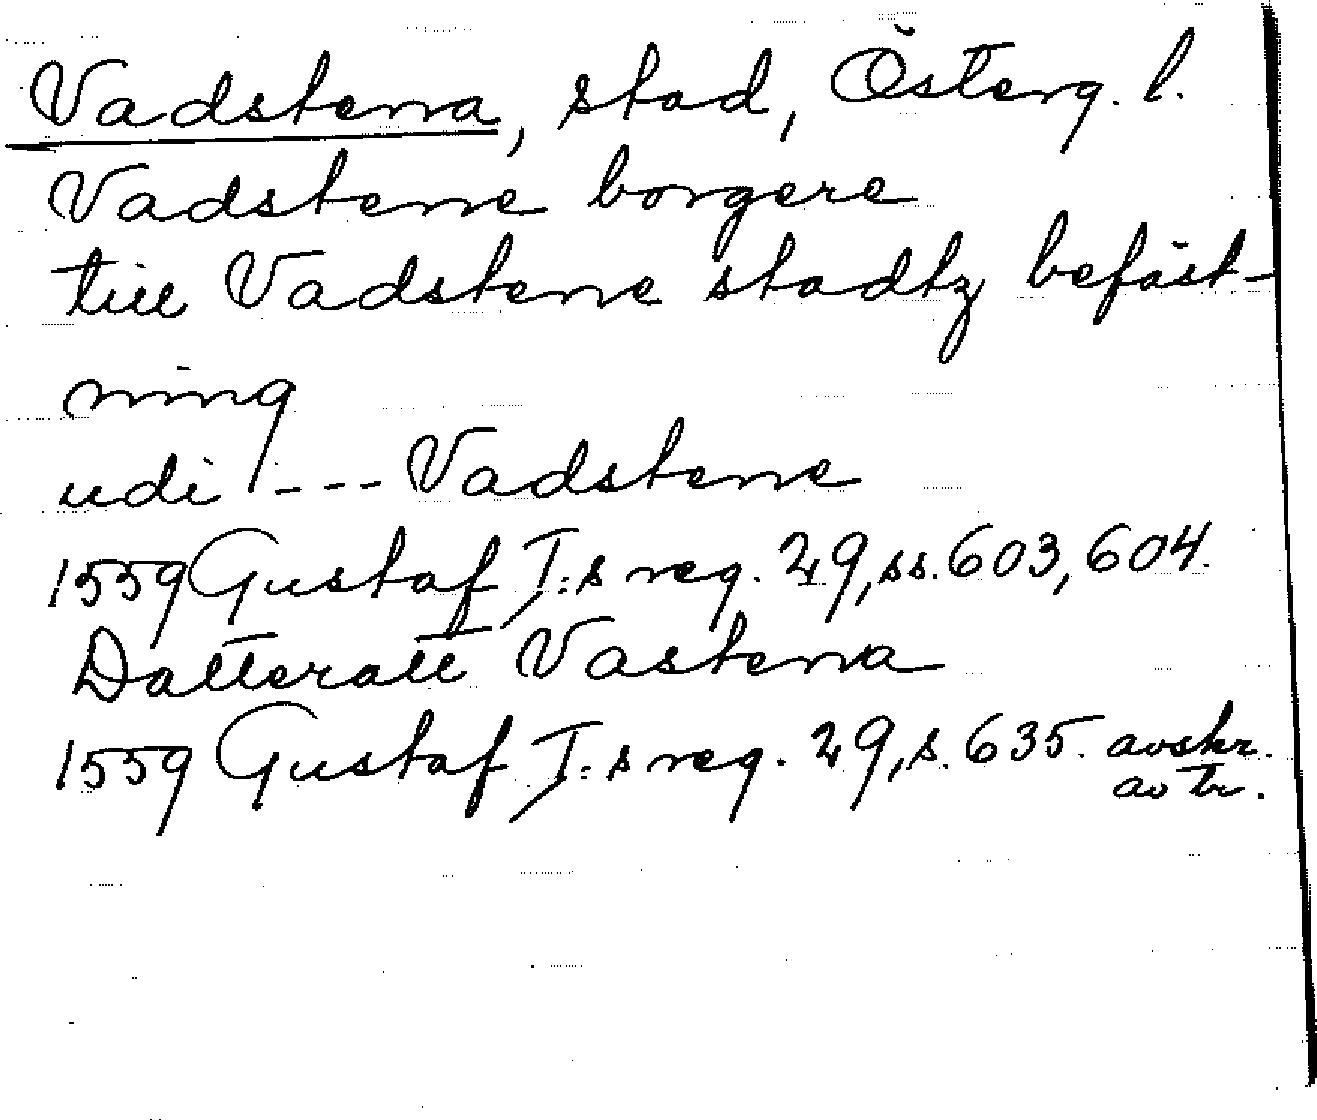 Vadstena, stad, Österg. l.
Vadstene borgere
till Vadstene stadtz befäst-
ning
udi --- Vadstene
1559 Gustaf I:s reg. 29, ss. 603, 604.
Datteratt Vastena
1559 Gustaf I:s reg. 29, s. 635. avskr.
av tr.